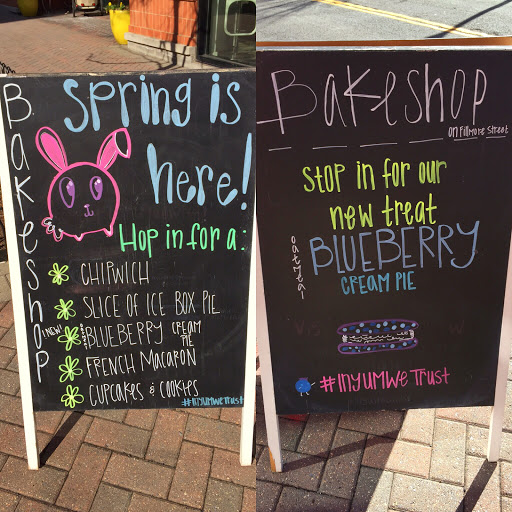 Bakeshop
Spring is
here!
Hop in for a:
CHIPWICH
SLICE OF ICE BOX PIE
(NEW!) BLUEBERRY CREAM
PIE
FRENCH MACARON
CUPCAKES & COOKIES
#INYUMWETrust
Bakeshop
on Fillmore Street
Stop in for our
new treat
oatmeal
BLUEBERRY
CREAM PIE
#INYUMWETrust